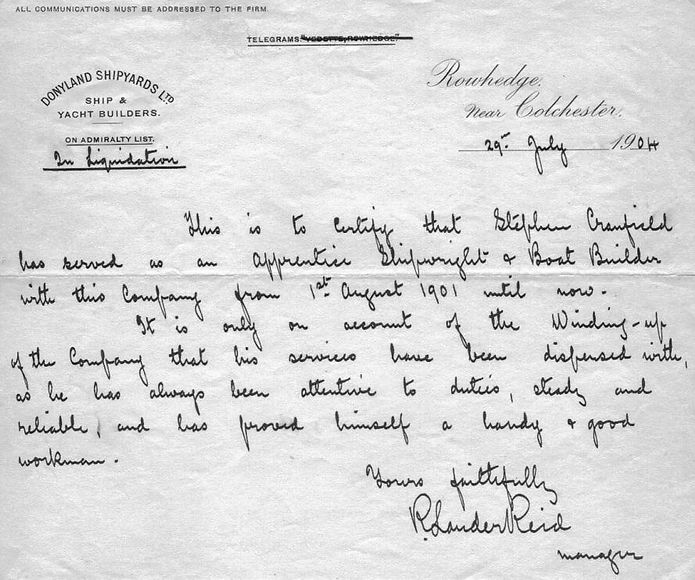 ALL COMMUNICATIONS MUST BE ADDRESSED TO THE FIRM.
TELEGRAMS "VEDETTE, ROWHEDGE."
DONYLAND SHIPYARDS LTD
SHIP &
YACHT BUILDERS.
ON ADMIRALTY LIST.
In Liquidation
Rowhedge.
Near Colchester.
29th July 1904
This is to certify that Stephen Cranfield
has served as an Apprentice Shipwright & Boat Builder
with this Company from 1st August 1901 until now.
It is only on account of the Winding-up
of the Company that his services have been dispensed with,
as he has always been attentive to duties, steady and
reliable, and has proved himself a handy & good
workman.
Yours faithfully
R. Lander Reid
manager